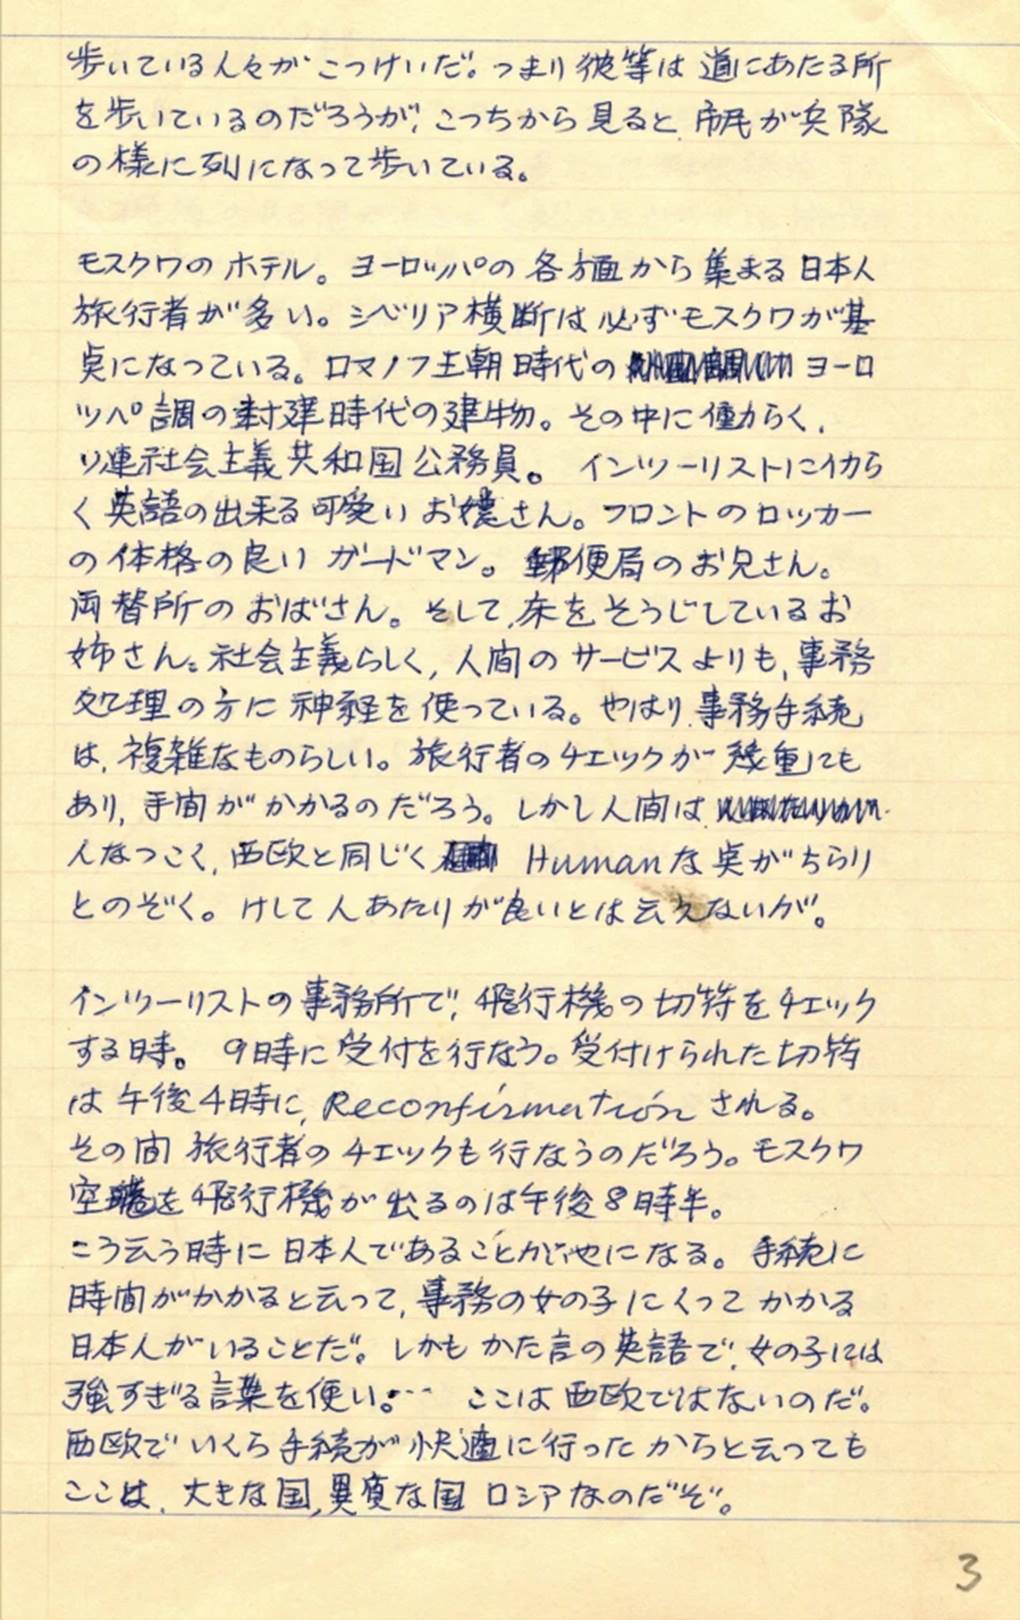 歩いている人々がこっけいだ。つまり彼等は道にあたる所
を歩いているのだろうが、こっちから見ると、市民が兵隊
の様に列になって歩いている。
モスクワのホテル。ヨーロッパの各方面から集まる日本人
旅行者が多い。シベリア横断は必ずモスクワが基
点になっている。ロマノフ王朝時代の ヨーロ
ッパ調の封建時代の建物。その中に働らく、
ソ連社会主義共和国公務員。インツーリストに働ら
く英語の出来る可愛いお嬢さん。フロントのロッカー
の体格の良いガードマン。郵便局のお兄さん。
両替所のおばさん。そして、床をそうじしているお
姉さん。社会主義らしく、人間のサービスよりも、事務
処理の方に神経を使っている。やはり、事務手続
は、複雑なものらしい。旅行者のチェックが幾重にも
あり、手間がかかるのだろう。しかし人間は、
人なつこく、西欧と同じく Humanな点がちらり
とのぞく。けして人あたりが良いとは云えないが。
インツーリストの事務所で、飛行機の切符をチェック
する時。9時に受付を行なう。受付けられた切符
は午後4時に、Reconfirmationされる。
その間旅行者のチェックも行なうのだろう。モスクワ
空港を飛行機が出るのは午後8時半。
こう云う時に日本人であることがいやになる。手続に
時間がかかると云って、事務の女の子にくってかかる
日本人がいることだ。しかもかた言の英語で、女の子には
強すぎる言葉を使い。… ここは西欧ではないのだ。
西欧でいくら手続が快適に行ったからと云っても
ここは、大きな国、異質な国ロシアなのだぞ。
3